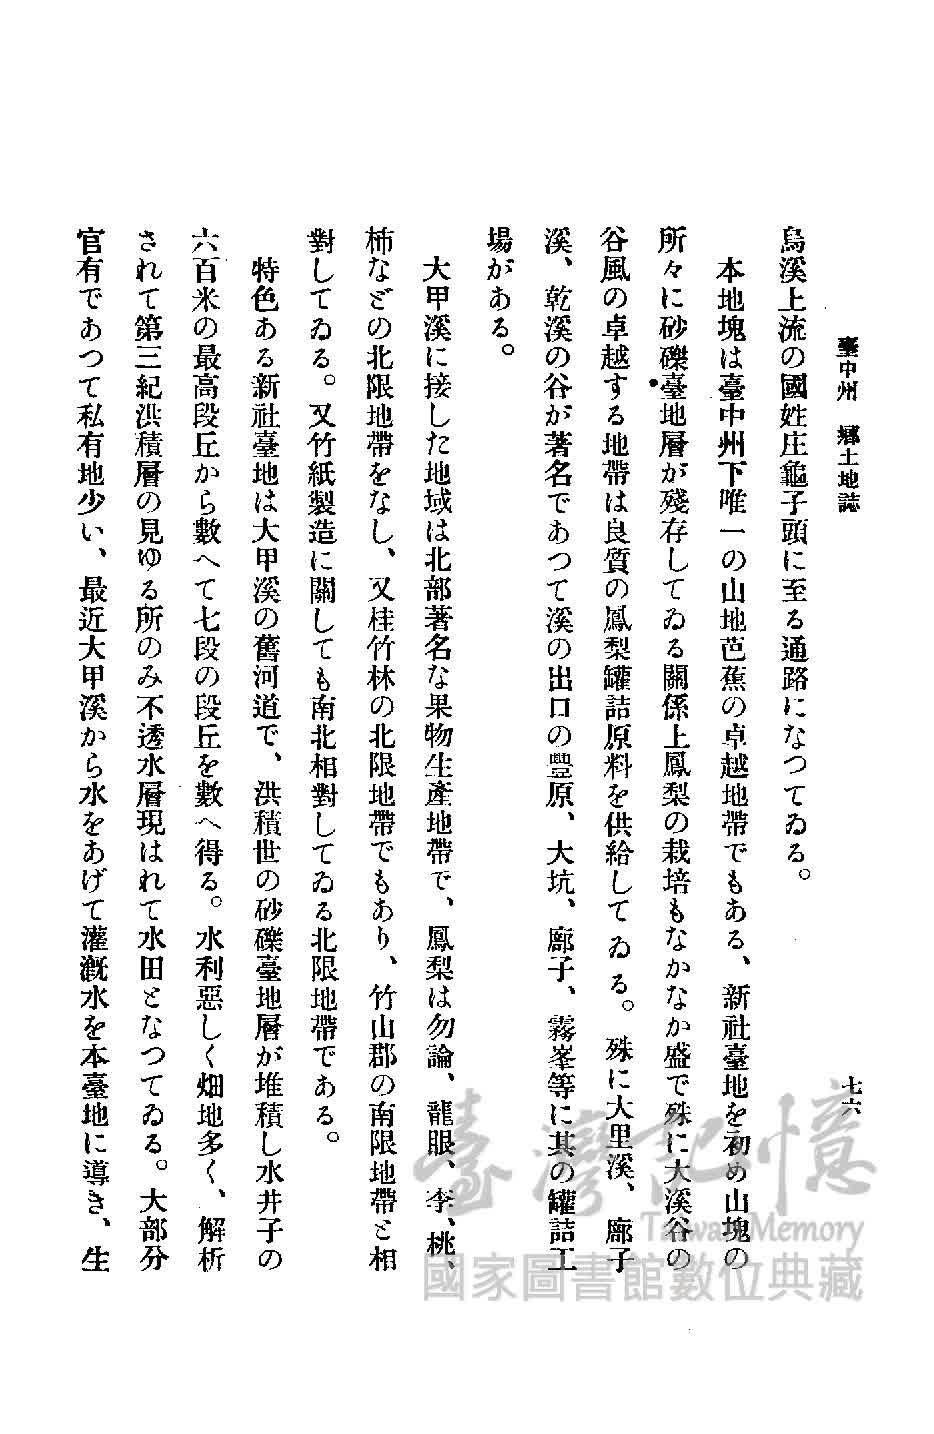 臺中州 鄕土地誌
七六
烏溪上流の國姓庄龜子頭に至る通路になつてゐる。
本地塊は臺中州下唯一の山地芭蕉の卓越地帶でもある、新社臺地を初め山塊の
所々に砂礫臺地層が殘存してゐる關係上鳳梨の栽培もなかなか盛で殊に大溪谷の
谷風の卓越する地帶は良質の鳳梨罐詰原料を供給してゐる。殊に大里溪、廍子
溪、乾溪の谷が著名であつて溪の出口の豐原、大坑、廍子、霧峯等に其の罐詰工
場がある。
大甲溪に接した地域は北部著名な果物生產地帶で、鳳梨は勿論、龍眼、李、桃、
柿などの北限地帶をなし、又桂竹林の北限地帶でもあり、竹山郡の南限地帶と相
對してゐる。又竹紙製造に關しても南北相對してゐる北限地帶である。
特色ある新社臺地は大甲溪の舊河道で、洪積世の砂礫臺地層が堆積し水井子の
六百米の最高段丘から數へて七段の段丘を數へ得る。水利惡しく畑地多く、解析
されて第三紀洪積層の見ゆる所のみ不透水層現はれて水田となつてゐる。大部分
官有であつて私有地少い、最近大甲溪から水をあげて灌漑水を本臺地に導き、生
臺灣記憶
Taiwan Memory
國家圖書館數位典藏